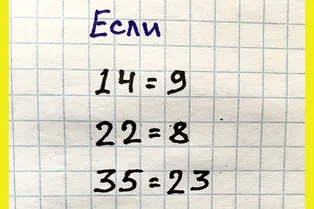 Если
14=9
22=8
35=23